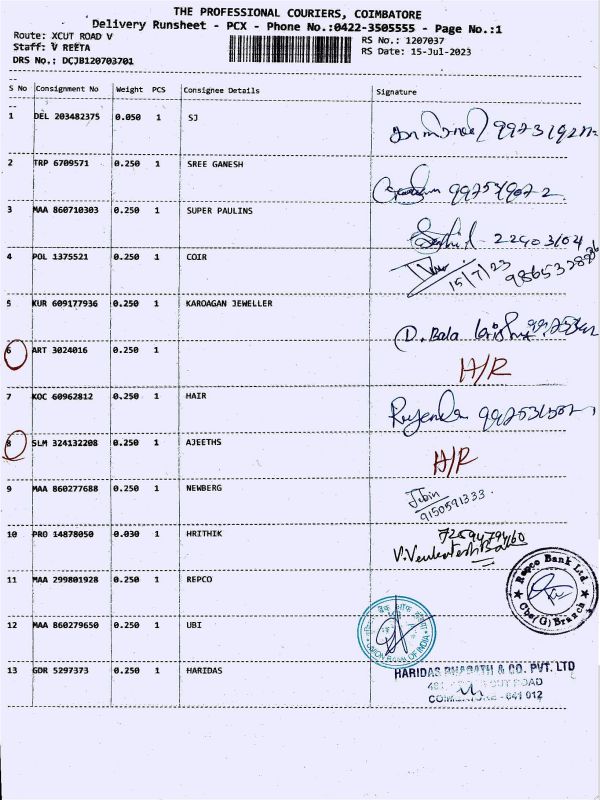 THE PROFESSIONAL COURIERS, COIMBATORE
Delivery Runsheet - PCX - Phone No.:0422-3505555 - Page No.:1
Route: XCUT ROAD V
RS No.: 1207037
Staff: V REETA
RS Date: 15-Jul-2023
DRS No.: DCJB120703701
S No Consignment No Weight PCS Consignee Details Signature
1 DEL 203482375 0.050 1 SJ
2 TRP 6709571 0.250 1 SREE GANESH
3 MAA 860710303 0.250 1 SUPER PAULINS
22403104
4 POL 1375521 0.250 1 COIR
15/7/23
5 KUR 609177936 0.250 1 KAROAGAN JEWELLER
D. Bala
6 ART 3024016 0.250 1
H/R
7 KOC 60962812 0.250 1 HAIR
8 SLM 324132208 0.250 1 AJEETHS
H/R
9 MAA 860277688 0.250 1 NEWBERG
Jebin
9150591333
10 PRO 14878050 0.030 1 HRITHIK
V.Venkatesh
11 MAA 299801928 0.250 1 REPCO
Repco Bank Ltd.
Cbe(G)Branch
12 MAA 860279650 0.250 1 UBI
UNION BANK OF INDIA
13 GDR 5297373 0.250 1 HARIDAS
HARIDAS BHARATH & CO. PVT. LTD
ROAD
641 012